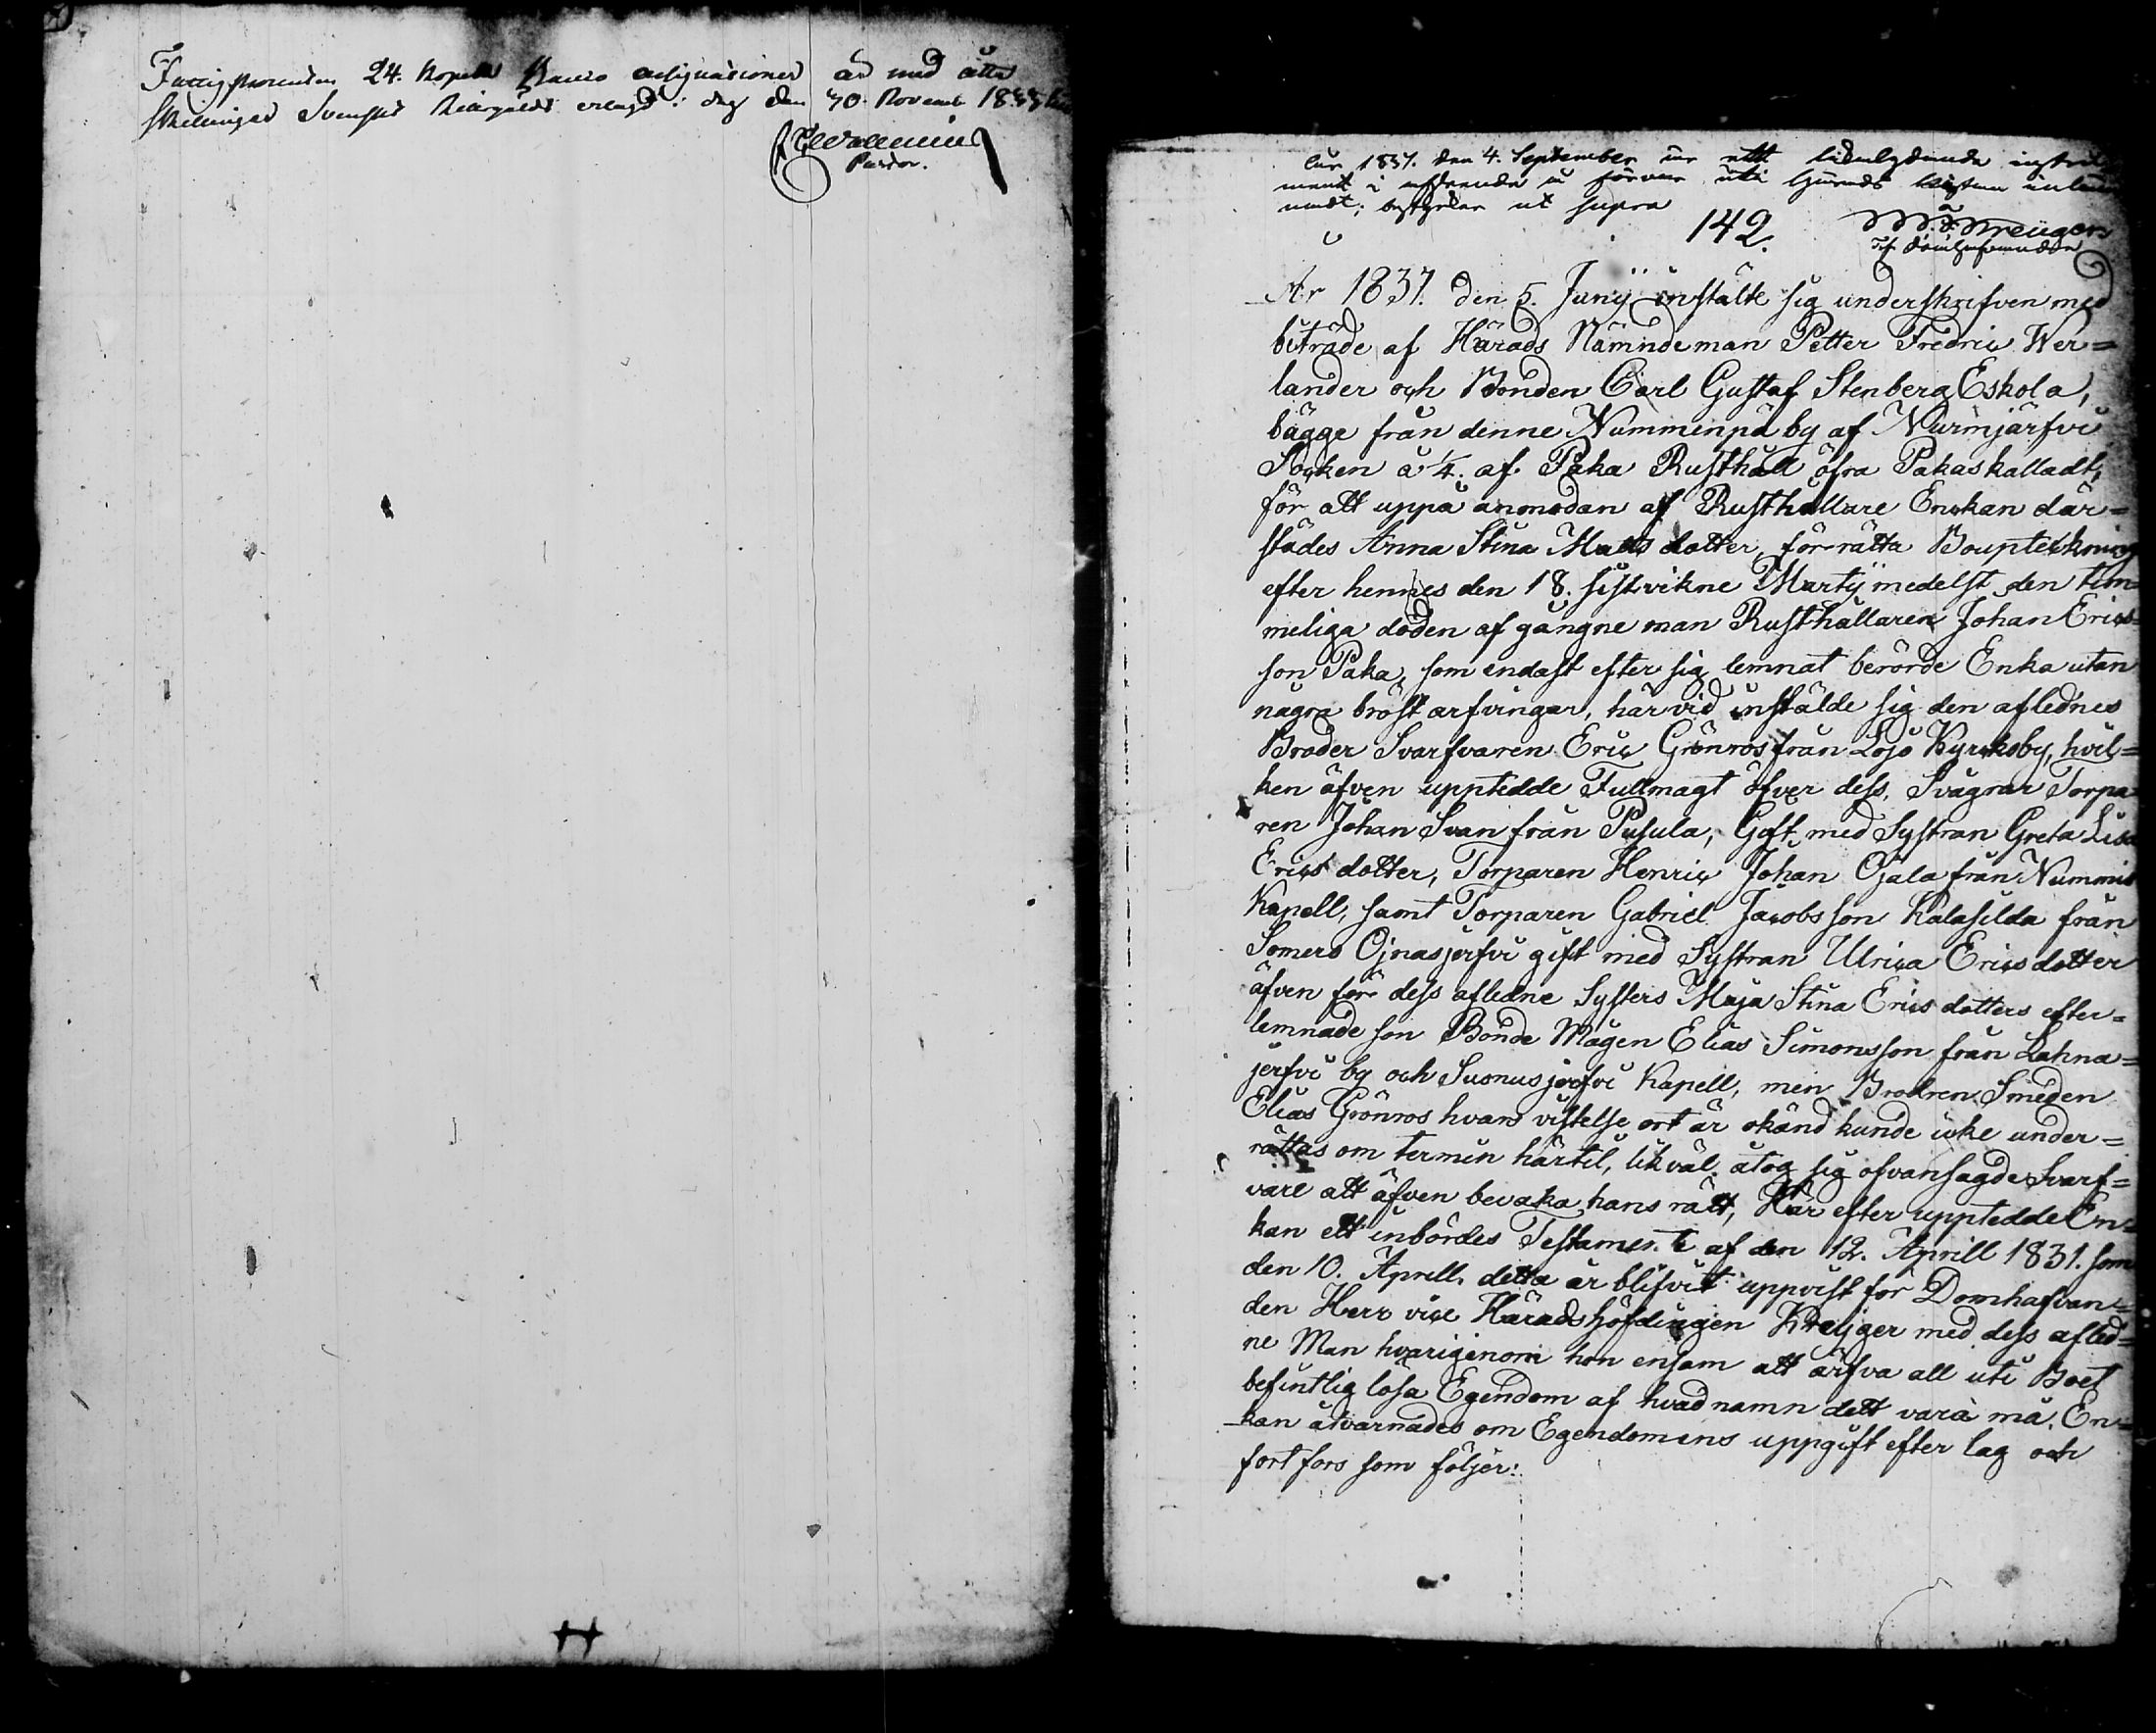 Fattigprocenten 24. Kopek Banco assignationer är med åtta
skillingar Svenskt Riksgälds erlagd i dag den 30. Novemb. 1833
Pastor.
År 1837. den 4. September är ett lika lydande instru
ment i afseende å förvar uti Härads kistan inläm
nadt; betygar ut supra
142.
Tf. Domhafvande
År 1837. den 5. Junÿ instälte sig underskrifven med
biträde af Härads Nämndeman Petter Fredric Wer=
lander och Bonden Carl Gustaf Stenberg Eskola,
bägge från denne Nummenpä by af Nurmjärfvi
Socken å ¼. af Paka Rusthåll öfra Pakas kalladt,
för att uppå anmodan af Rusthållare Enckan där=
städes Anna Stina Matts dotter, för rätta Boupteckning
efter hennes den 18. sistvikne Martÿ medelst den tim=
meliga döden af gångne man Rusthållaren Johan Erics=
son Paka, som endast efter sig lemnat berörde Enka utan
några bröst arfvingar, härvid instälde sig den aflednes
Broder Svarfvaren Eric Grönros från Lojo Kyrckoby, hvil=
ken äfven upptedde Fullmagt öfver dess, Svågrar Torpa
ren Johan Svan från Pusula, Gift med Systran Greta Lisa
Erics dotter, Torparen Henric Johan Ojala från Nummis
Kapell, samt Torparen Gabriel Jacobsson Kalasilda från
Somero Ojnasjerfvi gift med Systran Ulrica Ericsdotter
äfven för dess afledne Systers Maja Stina Erics dotters efter=
lemnade son Bonde Mågen Elias Simonsson från Lahna=
jerfvi by och Susnusjerfvi Kapell, men Brodren Smeden
Elias Grönros hvars vistelse ort är okänd kunde icke under=
rättas om termin härtil, likväl åtog sig ofvansagde Svarf=
vare att äfven bevaka hans rätt, Här efter upptedde En=
kan ett inbördes Testamente af den 12. Aprill 1831. som
den 10. Aprell detta år blifvit uppvist för Domhafvan=
den Herr vice Häradshöfdingen Kreijger med dess afled=
ne Man hvarigenom hon ensam att ärfva all uti Boet
befintlig lösa Egendom af hvad namn dett vara må. En=
kan åtvarnades om Egendomens uppgift efter lag och
fort fors som följer: